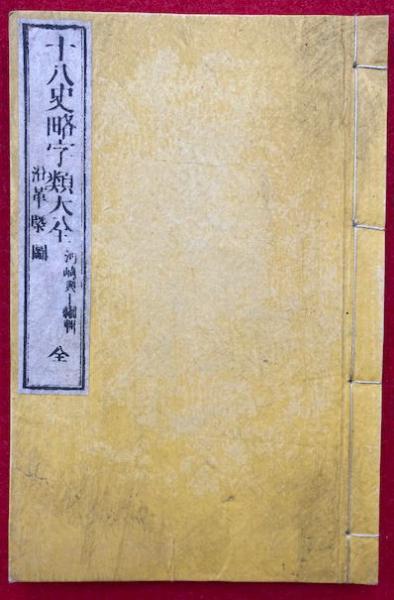 十八史略字類大全
沿革畧圖
河嶋興一編輯
全